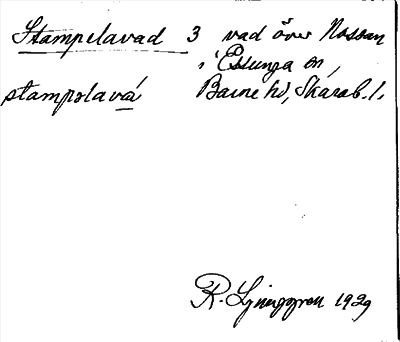 Stampelavad 3 vad över Nossan
i Essunga sn,
stampslavá Barne hd, Skarab. l.
R. Ljunggren 1929